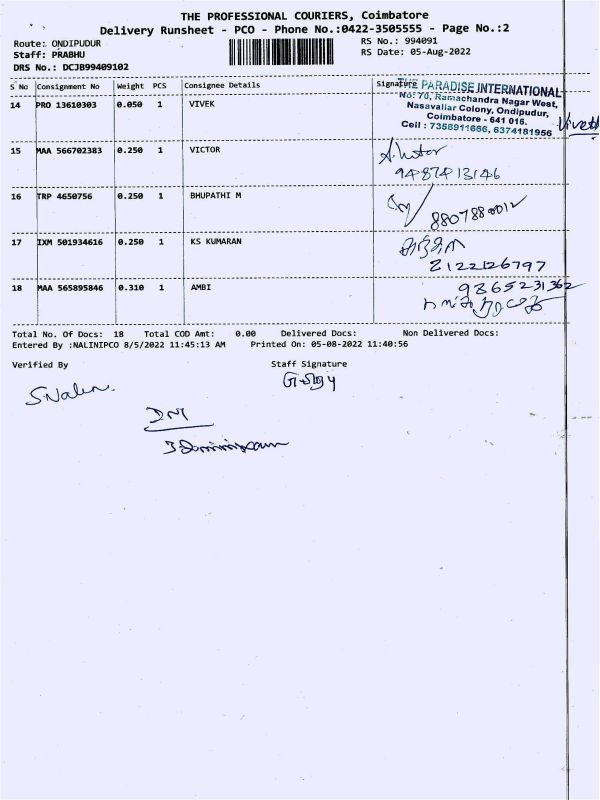 THE PROFESSIONAL COURIERS, Coimbatore
Delivery Runsheet - PCO - Phone No.:0422-3505555 - Page No.:2
Route: ONDIPUDUR
RS No.: 994091
Staff: PRABHU
RS Date: 05-Aug-2022
DRS No.: DCJB99409102
S No Consignment No Weight PCS Consignee Details Signature
14 PRO 13610303 0.050 1 VIVEK
THE PARADISE INTERNATIONAL
No: 70, Ramachandra Nagar West,
Nasavaliar Colony, Ondipudur,
Coimbatore - 641 016.
Cell : 7358911666, 6374181956
15 MAA 566702383 0.250 1 VICTOR
9487413146
16 TRP 4650756 0.250 1 BHUPATHI M
17 IXM 501934616 0.250 1 KS KUMARAN
18 MAA 565895846 0.310 1 AMBI
9865231362
Total No. Of Docs: 18 Total COD Amt: 0.00 Delivered Docs: Non Delivered Docs:
Entered By :NALINIPCO 8/5/2022 11:45:13 AM Printed On: 05-08-2022 11:40:56
Verified By Staff Signature